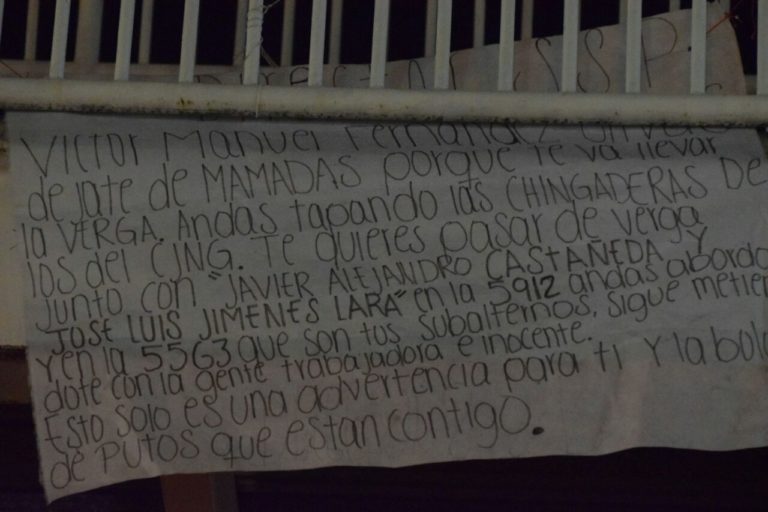 SSP
Victor Manuel Fernandez
dejate de MAMADAS porque te va llevar
la VERGA. Andas tapando las CHINGADERAS DE
los del CJNG. Te quieres pasar de verga
junto con "JAVIER ALEJANDRO CASTAÑEDA Y
JOSE LUIS JIMENES LARA" en la 5912 andas abordo
y en la 5563 que son tus subalternos, sigue metien
dote con la gente trabajadora e inocente.
Esto solo es una advertencia para ti Y la bola
de PUTOS que estan contigo.